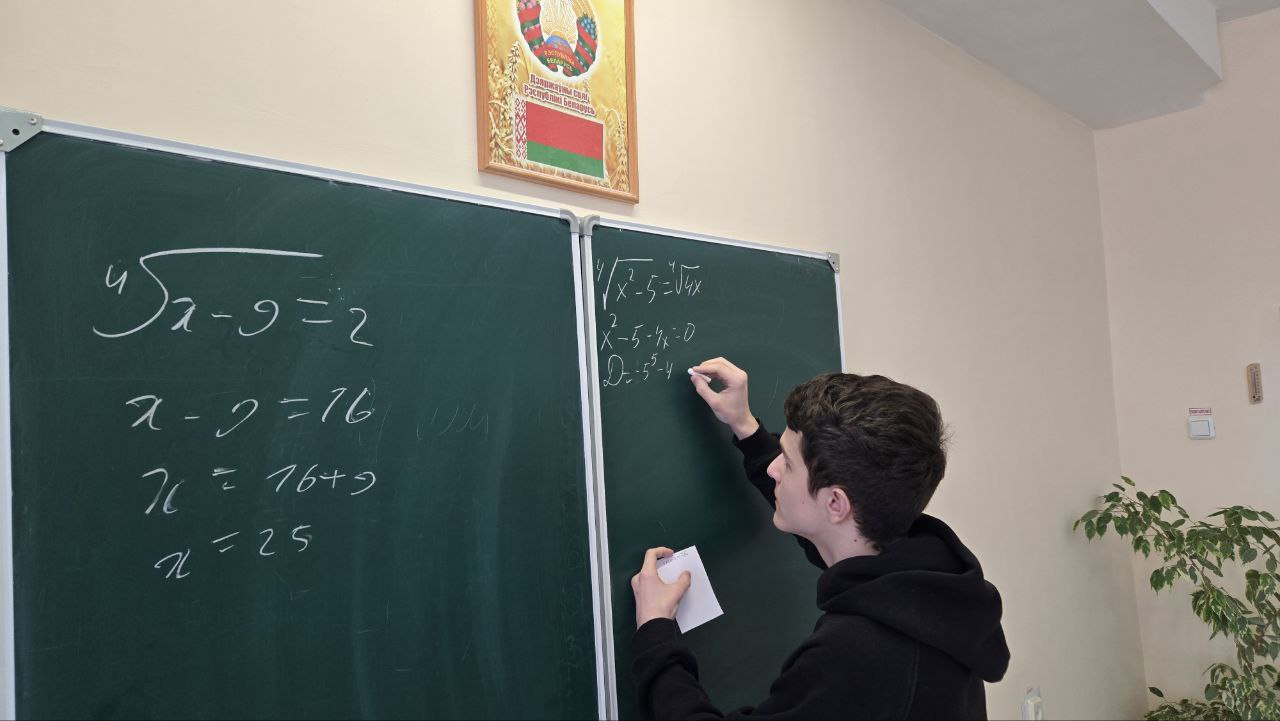 РЭСПУБЛІКА
БЕЛАРУСЬ
Дзяржаўны сцяг
Рэспублікі Беларусь
⁴√x-9 = 2
x - 9 = 16
x = 16+9
x = 25
⁴√x²-5 = ⁴√4x
x²-5-4x=0
D=-5⁵-4